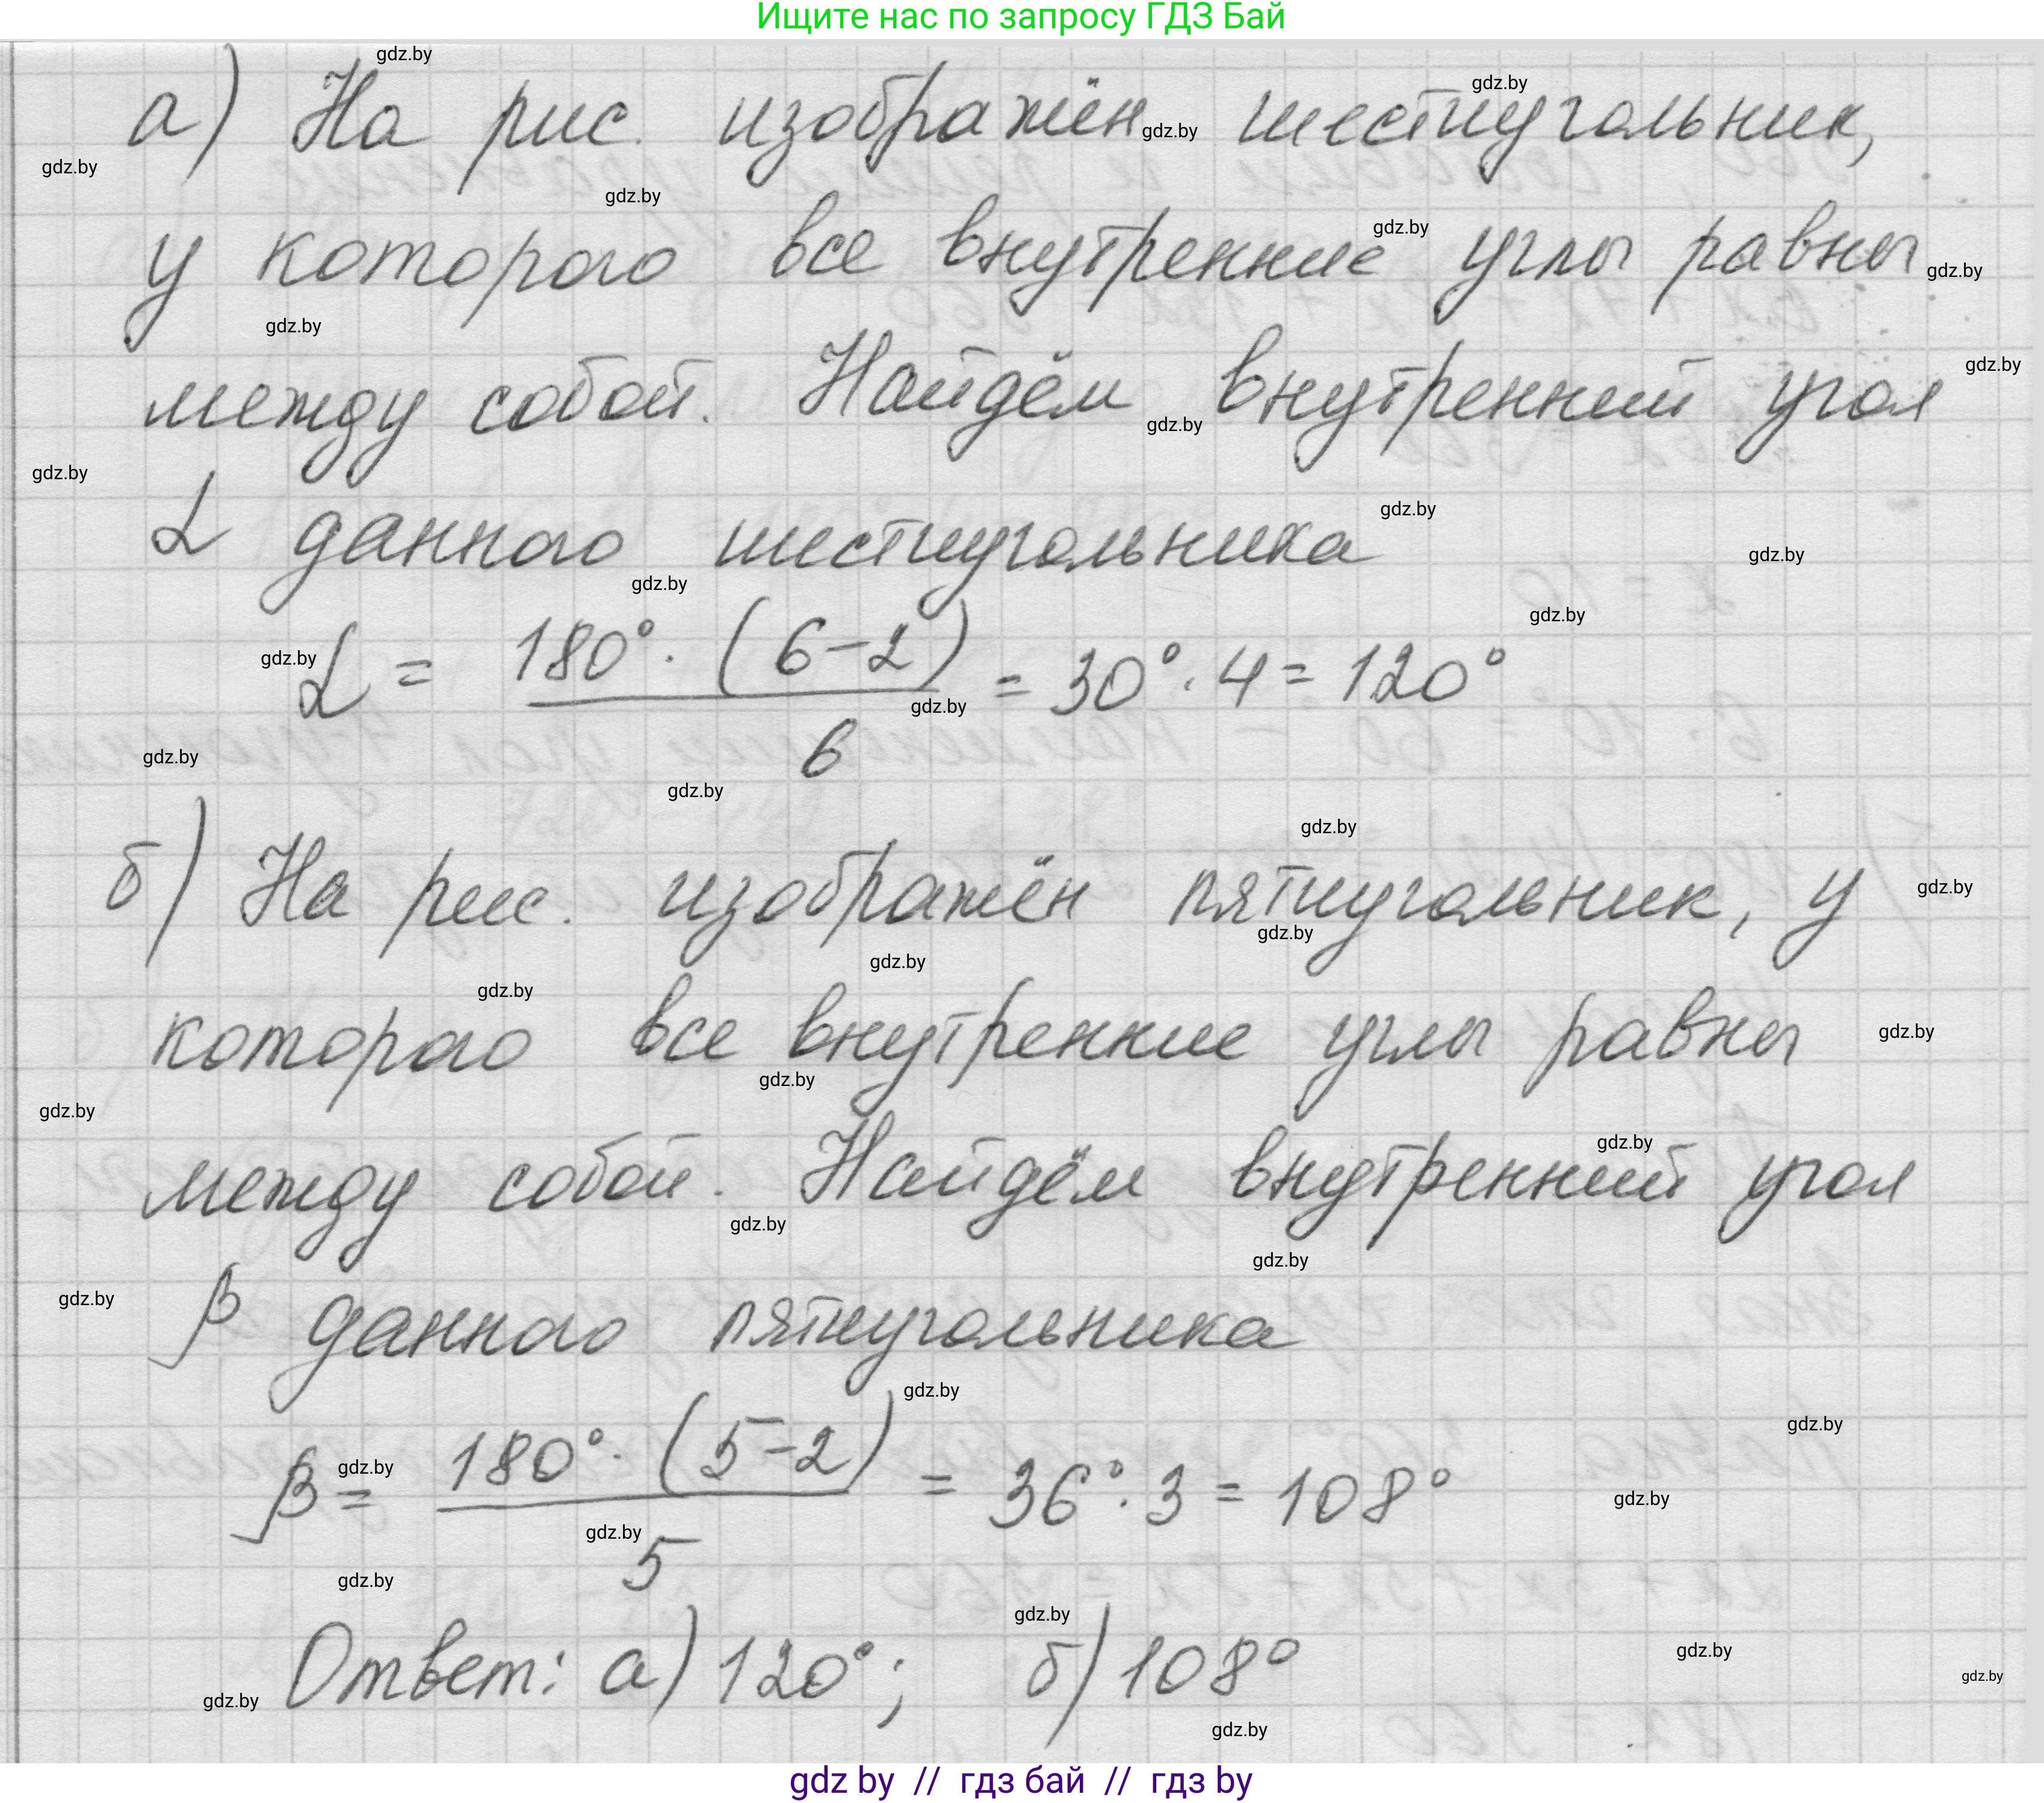 Ищите нас по запросу ГДЗ Бай
а) На рис. изображён шестиугольник,
у которого все внутренние углы равны
между собой. Найдём внутренний угол
α данного шестиугольника
α = 180° · (6-2) / 6 = 30° · 4 = 120°
б) На рис. изображён пятиугольник, у
которого все внутренние углы равны
между собой. Найдём внутренний угол
β данного пятиугольника
β = 180° · (5-2) / 5 = 36° · 3 = 108°
Ответ: а) 120°; б) 108°
gdz by // гдз бай // гдз by